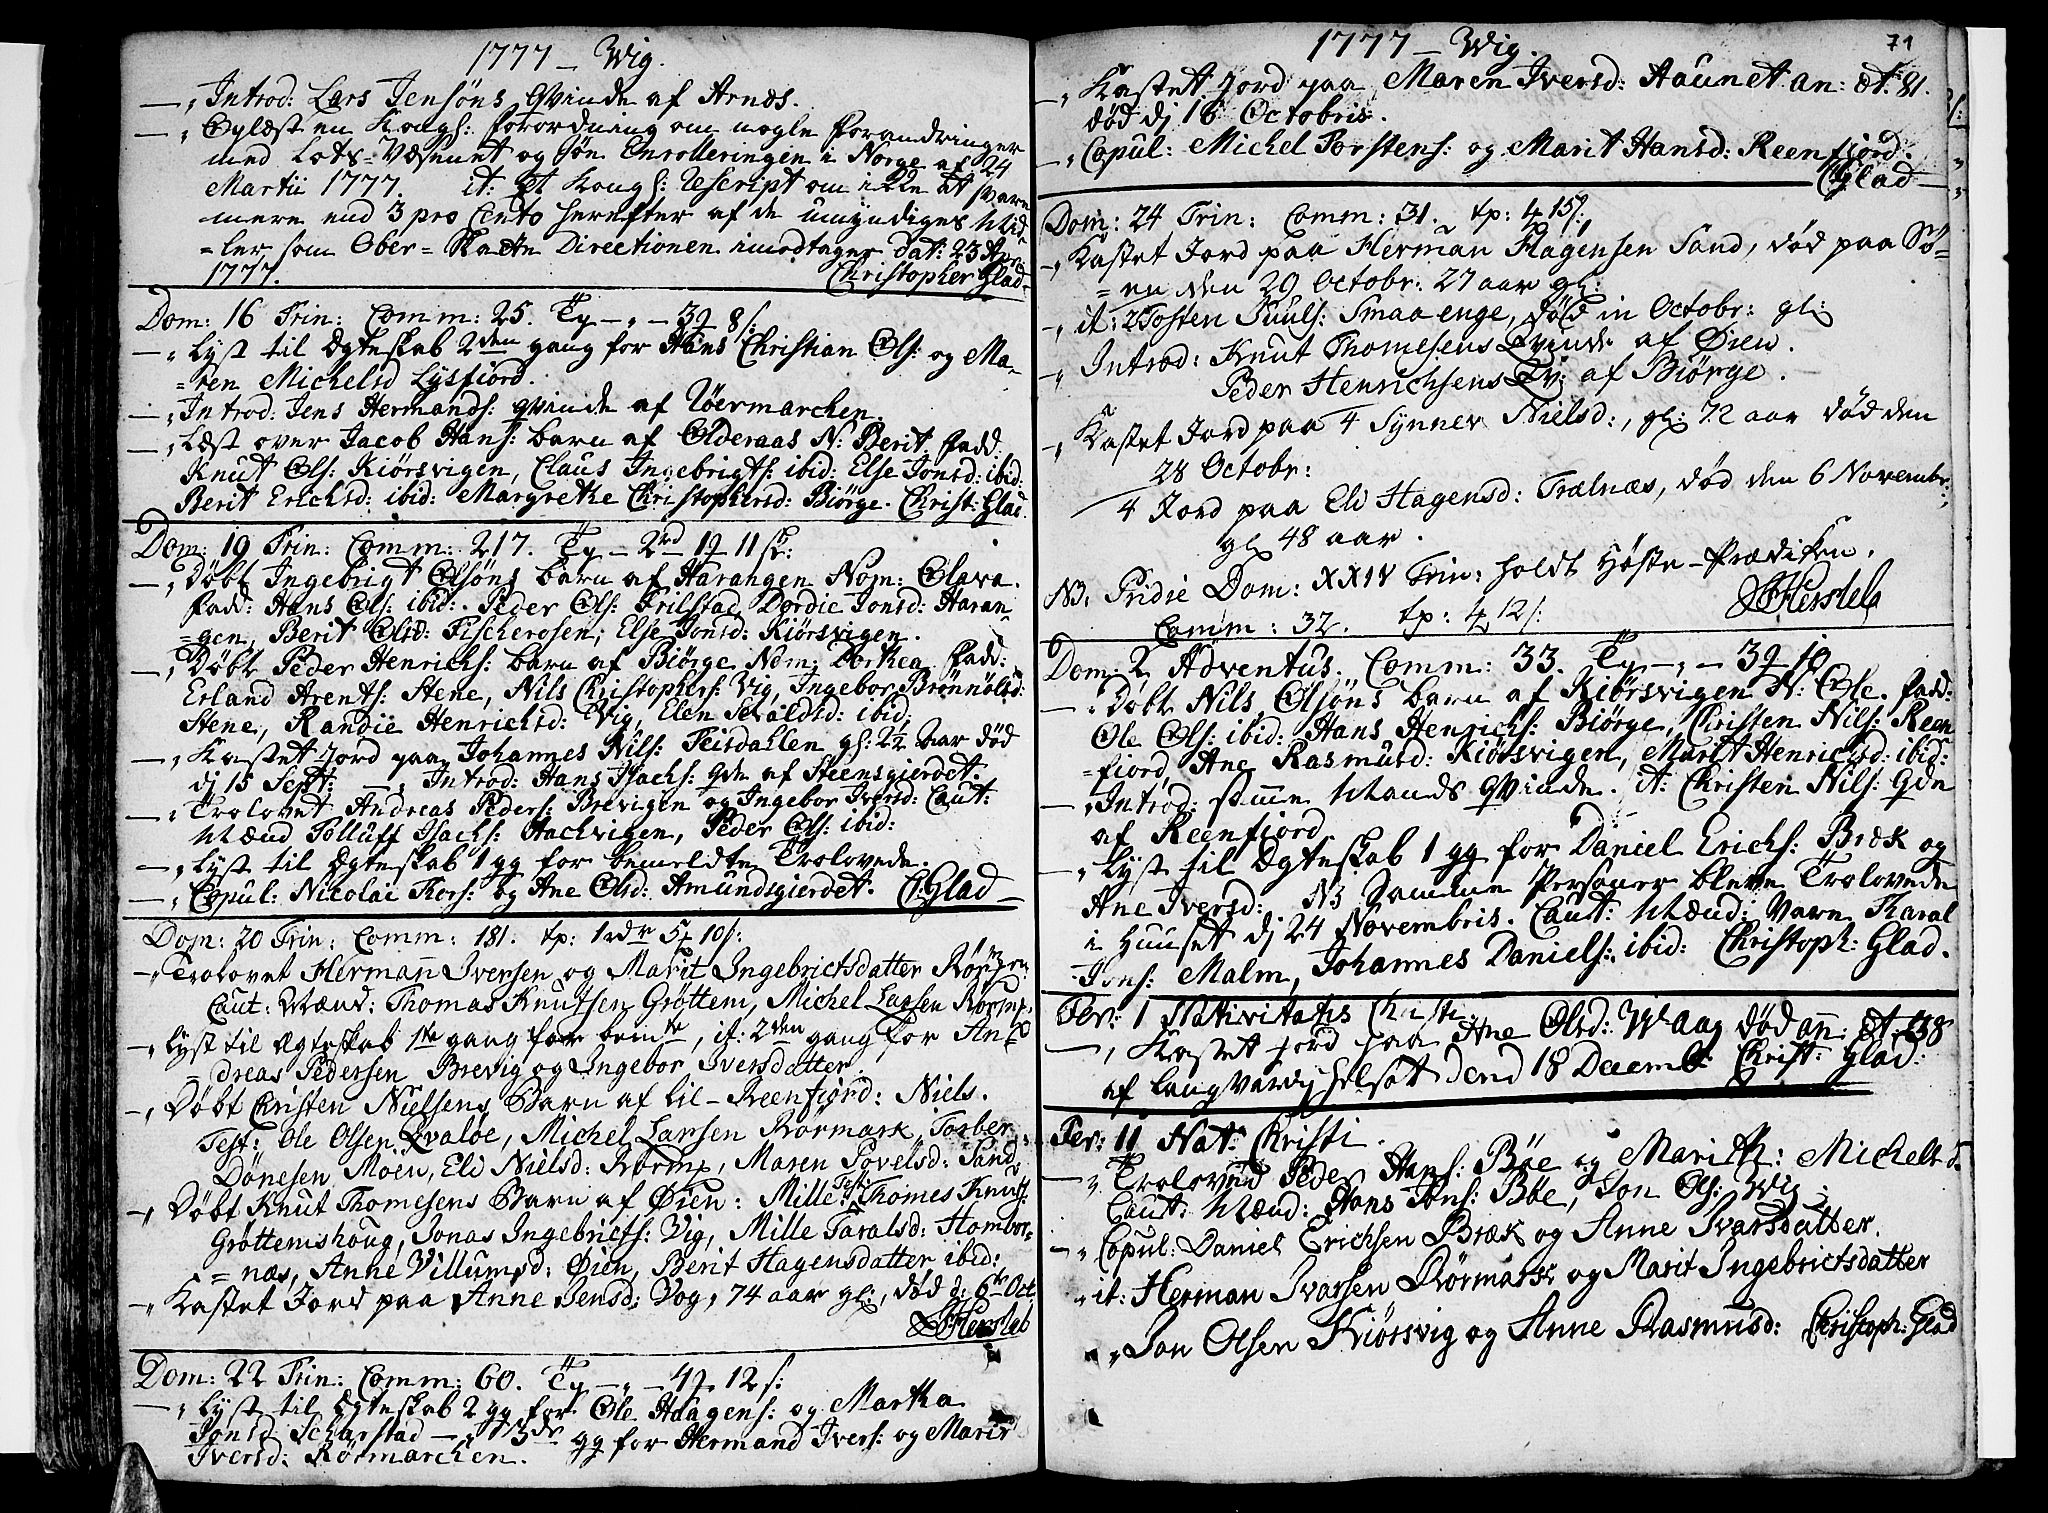 1777 – Wig.
–„ Introd: Lars Jensøns qvinde af Arnøs.
–„ Oplæst en Kongl: forordning om nogle forandringer
med Lots-Væsenet og Søe Enrolleringen i Norge af 24
Martii 1777. it: et Kongl: Rescript om ikke at svare
mere end 3 pro Cento herefter af de umyndiges Mid-
=ler som Ober-Skatte Directionen imodtager dat: 23 Apr:
1777. Christopher Glad
Dom: 16 Trin: Comm: 25. Tp –„– 3 8 s:
–„ Lyst til Ægteskab 2den gang for Hans Christian Ols: og Ma-
=ren Michelsd Lysfiord.
–„ Introd: Jens Hermands: qvinde af Røermarchen.
–„ Læst over Jacob Hans: barn af Olderaas N: Berit. fadd:
Knut Ols: Kiørsvigen, Claus Ingebrigts: ibid: Else Jonsd: ibid:
Berit Erichsd: ibid: Margrethe Christophersd: Biørge. Christ: Glad.
Dom: 19 Trin: Comm: 217. Tp – 2rd 1 11 s:
–„ Døbt Ingebrigt Olsøns barn af Harangen Nom: Olava.
fadd: Hans Ols: ibid: Peder Ols: Frilstad, Dordie Jonsd: Haran-
=gen, Berit Olsd: Fischerosen, Else Jonsd: Kiørsvigen.
–„ Døbt Peder Henrichs: barn af Biørge Nom: Dorthea. fadd:
Erland Arents: Stene, Nils Christophers: Vig, Ingebor Brønnolsd:
Stene, Randie Henrichsd: Vig, Elen Sevaldsd: ibid:
–„ Kastet Jord paa Johannes Nils: Feisdahlen gl: 2½ aar død
dj 15 Sept: –„ Introd: Hans Isachs: qde af Steensgierdet.
–„ Trolovet Andreas Peders: Brevigen og Ingebor Iversd: Caut:
Mænd Tolluff Isachs: Hachvigen, Peder Ols: ibid:
–„ Lyst til Ægteskab 1 gg for bemeldte Trolovede.
–„ Copul: Nicolai Kors: og Ane Olsd: Amundsgierdet. C: Glad
Dom: 20 Trin: Comm: 181. tp: 1rdr 5 10 s:
–„ Trolovet Herman Iversen og Marit Ingebrictsdatter
Caut: Mænd: Thomas Knutsen Grøttem, Michel Larsen
–„ Lyst til Ægteskab 1te gang for bemte, it: 2den gang for An-
dreas Pedersen Brevig og Ingebor Iversdatter.
–„ Døbt Christen Nielsens Barn af lil-Reenfiord: Niels.
Test: Ole Olsen Qvaløe, Michel Larsen Rørmark, Torber
Dønesen Moen, Eli Nielsd: Rørmp, Maren Povelsd: Sand
–„ Døbt Knut Thomesens Barn af Øien: Mille: Test: Thomes Knuts:
Grøttemshoug, Jonas Ingebricts: Vig, Mille Taralsd: Hombor-
=næs, Anne Villumsd: Øien, Berit Hagensdatter ibid:
–„ Kastet Jord paa Anne Jensd: Vog, 74 aar gl:, død d: 6te Oct
Hersleb
Dom: 22 Trin: Comm: 60. Tp –„– 4 12 s:
–„ Lyst til Ægteskab 2 gg for Ole Haagens: og Martha
Jonsd Scharstad –„ 3de gg for Hermand Ivers: og Marit
Iversd: Rørmarchen.
1777 – Wig. 71
–„ Kastet Jord paa Maren Iversd: Haunet an: æt: 81.
død dj 16 Octobris.
–„ Copul: Michel Torstens: og Marit Hansd: Reenfjord.
C Glad
Dom: 24 Trin: Comm: 31. tp: 4 15 s:
–„ Kastet Jord paa Herman Hagensen Sand, død paa Sø-
=en den 29 Octobr: 27 aar gl:
–„ it: Tosten Juuls: Smaaenge, død in Octobr: gl:
–„ Introd: Knut Thomesens Qvinde af Øien.
Peder Henrichsens Qv: af Biørge.
–„ Kastet Jord paa Synnev Nielsd:, gl: 72 aar død den
28 Octobr:
Jord paa Eli Hagensd: Trælnæs, død den 6 Novembr:
gl: 48 aar.
NB. Pridie Dom: XXIV Trin: holdt Høste-Prædiken.
Comm: 32. tp: 4 12 s: Hersleb
Dom: 2 Adventus. Comm: 33. Tp –„– 3 10
–„ Døbt Nils Olsøns barn af Kiørsvigen N: Ole. fadd:
Ole Ols: ibid: Hans Henrichs: Biørge, Christen Nils: Reen
=fiord, Ane Rasmusd: Kiørsvigen, Marit Henrichsd: ibid:
–„ Introd: samme Mands qvinde. it: Christen Nils: qde
af Reenfiord.
–„ Lyst til Ægteskab 1 gg for Daniel Erichs: Bræk og
Ane Iversd: NB Samme Personer bleve Trolovede
i Huuset dj 24 Novembris. Caut: Mænd: Vare Haral
Jons: Malm, Johannes Daniels: ibid: Christoph: Glad.
Fer: 1 Nativitatis Christi.
–„ Kastet jord paa Ane Olsd: Waag død an: æt
af langvarig helsot dend 18 Decemb: Christ: Glad:
Fer: 11 Nat: Christi.
–„ Troloved Peder Hans: Bøe og Marith: Michelsd.
Caut: Mænd: Hans Jons: Bøe, Jon Ols: Wig.
–„ Copul: Daniel Erichsen Bræk og Anne Ivarsdatter.
„ it: Herman Ivarsen Rørmark og Marit Ingebrictsdatter
„ Jon Olsen Kiørsvig og Anne Rasmusd: Christoph: Glad